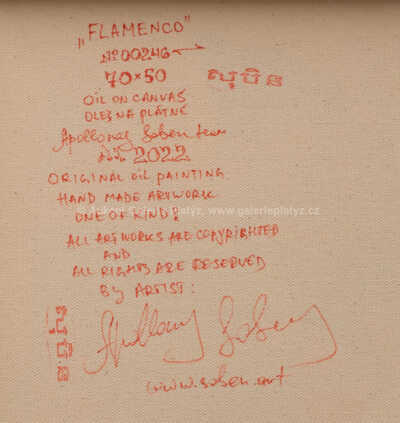 „FLAMENCO”
Nº00246
70×50
សុប៊ិន
OIL ON CANVAS
OLEJ NA PLÁTNĚ
Apollonas Soben
2022
ORIGINAL OIL PAINTING
HAND MADE ARTWORK
ONE OF KIND!
www.galerieplatyz.cz
ALL ARTWORKS ARE COPYRIGHTED
AND
ALL RIGHTS ARE RESERVED
BY ARTIST:
Apollonas Soben
www.soben.art